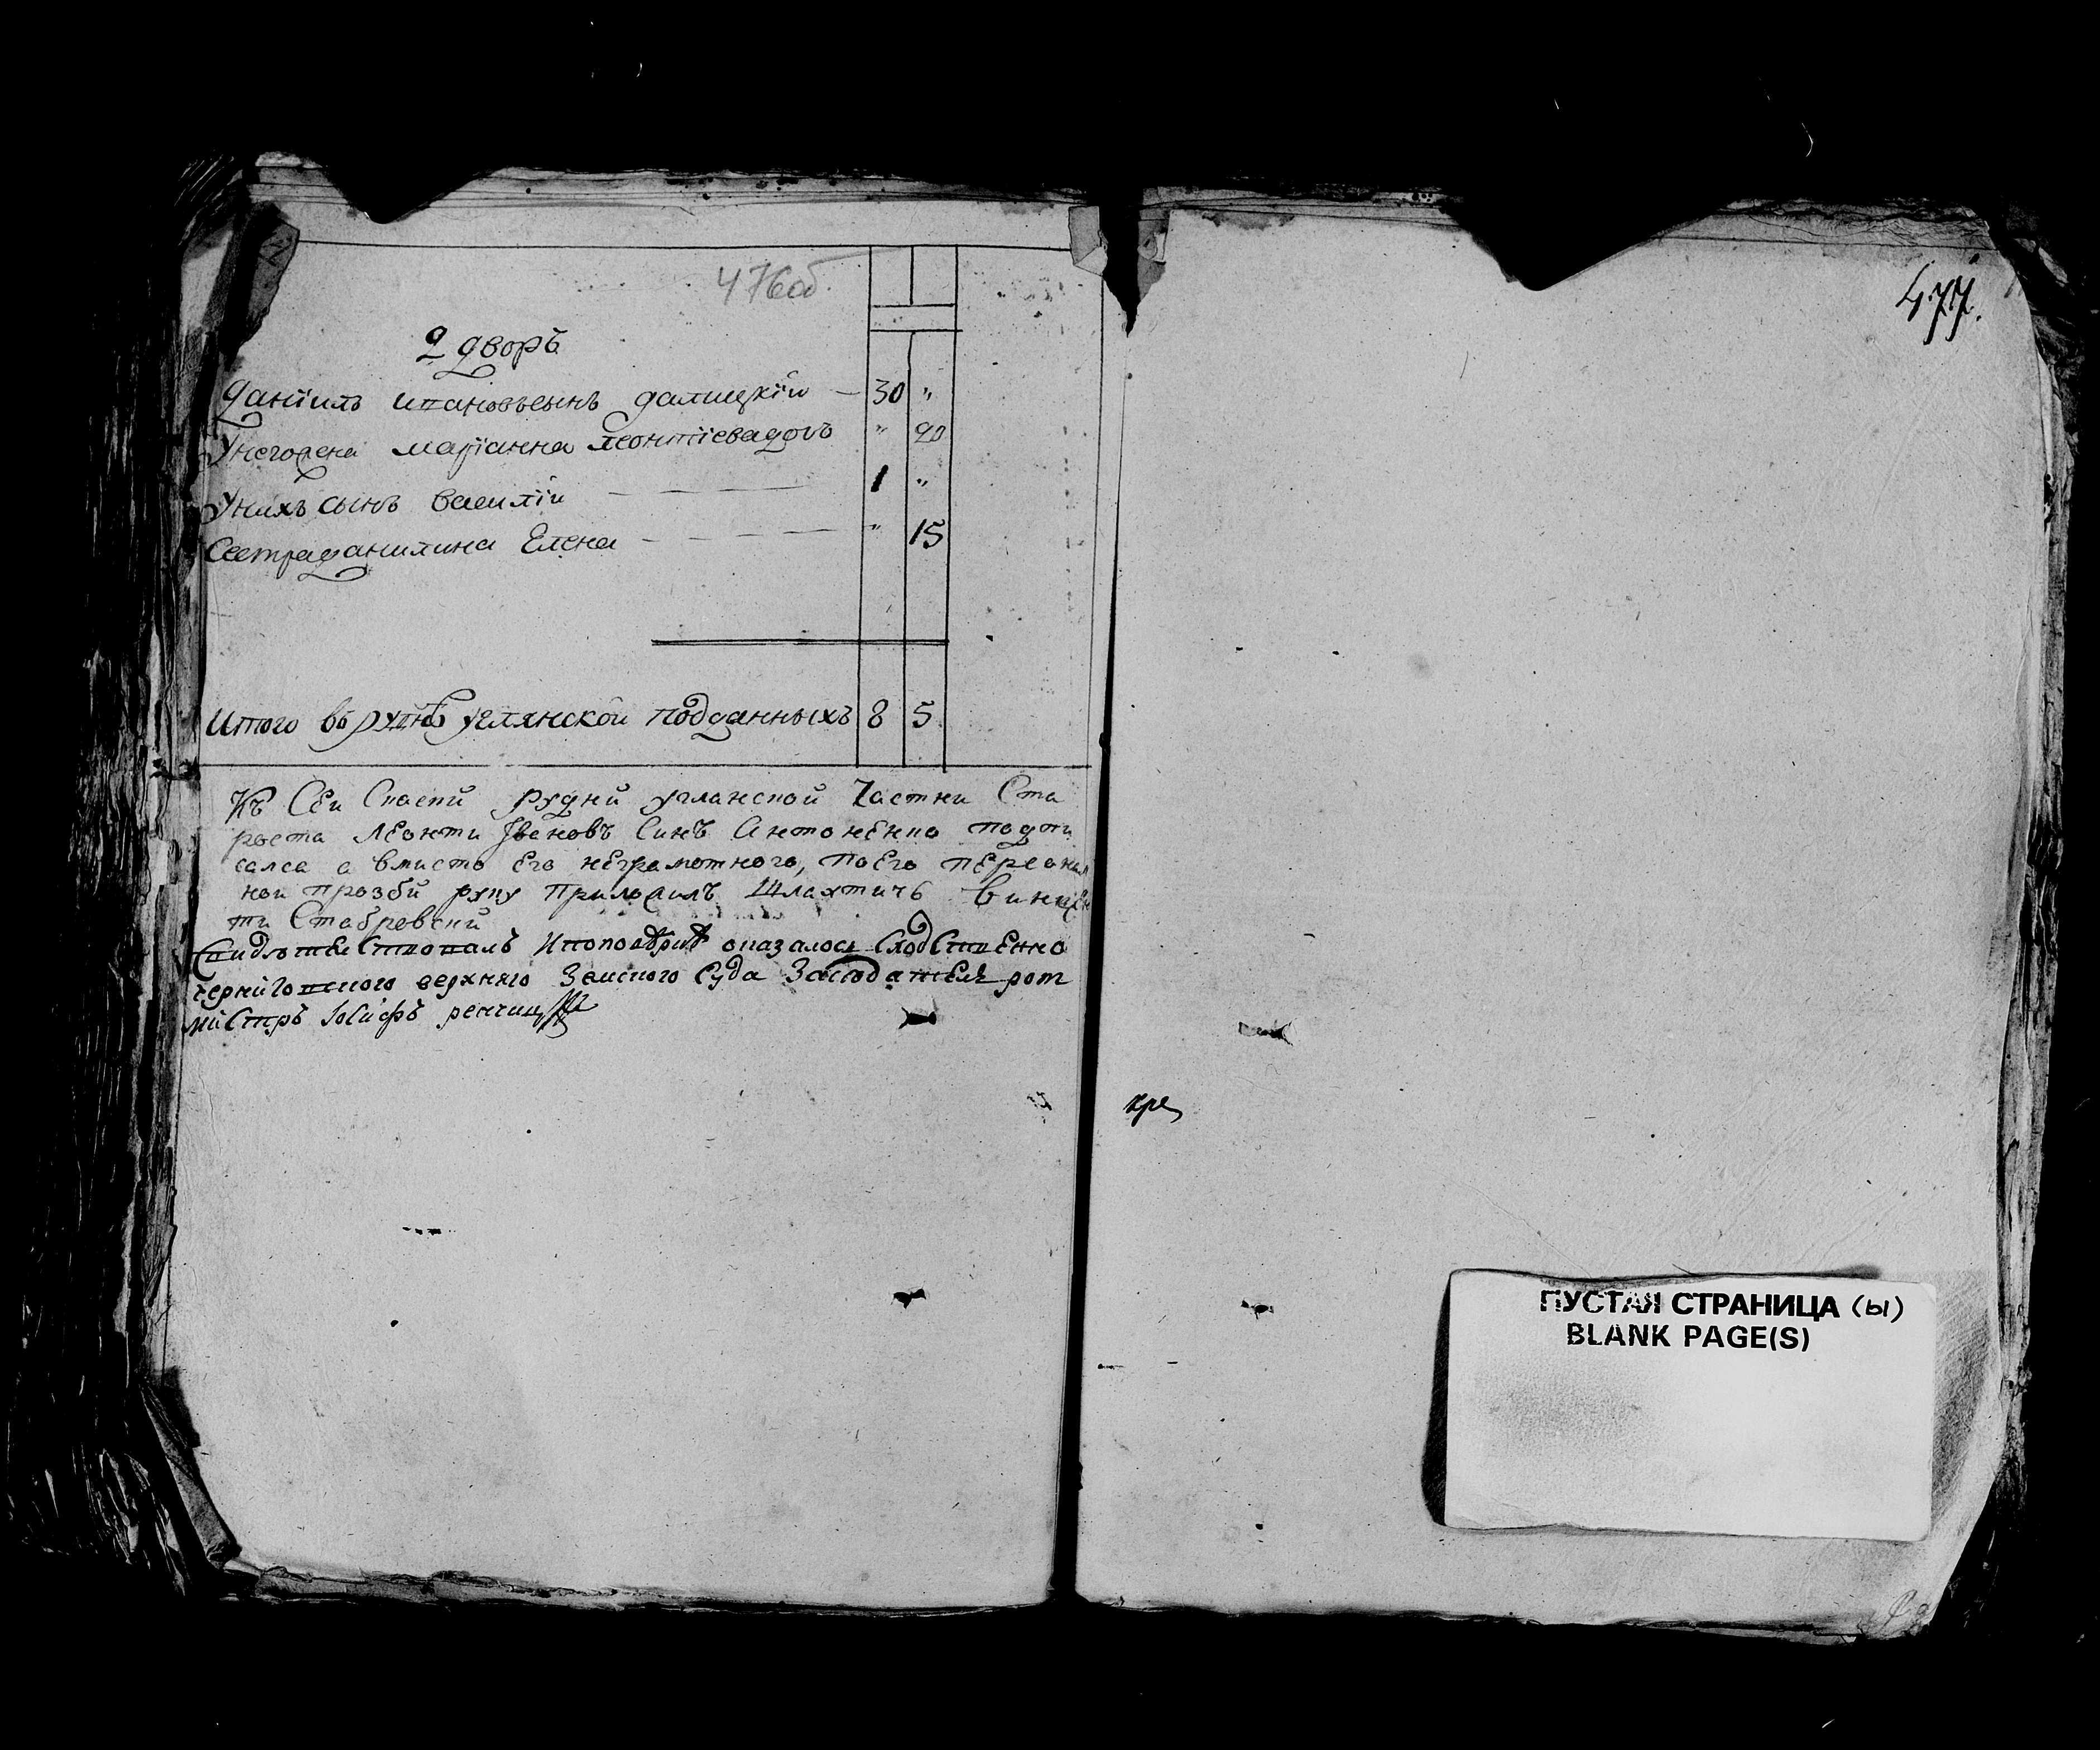 476об.
2 дворъ
Даніилъ ивановъсынъ галицкій 30 "
Унегожена маріанна леонтіевадочь " 20
Унихъ сынъ василій 1 "
Сестраданилина Елена " 15
Итого въ руднѣ углянской подданныхъ 8 5
Къ Сеи Скаски рудни углянской Частки Ста
роста Леонти Ивановъ Синъ Антоненко подпи
салса а вмисто Его неграмотного, поЕго персонал
ной прозби руку приложилъ Шляхтичъ Винцен
ти Стабровский
Свидѣтелствовалъ Иповѣрке оказалось Сходственно
черниговского верхняго Земского Суда Заседатель рот
миСтръ Іосифъ
477.
кре
ПУСТАЯ СТРАНИЦА (Ы)
BLANK PAGE(S)